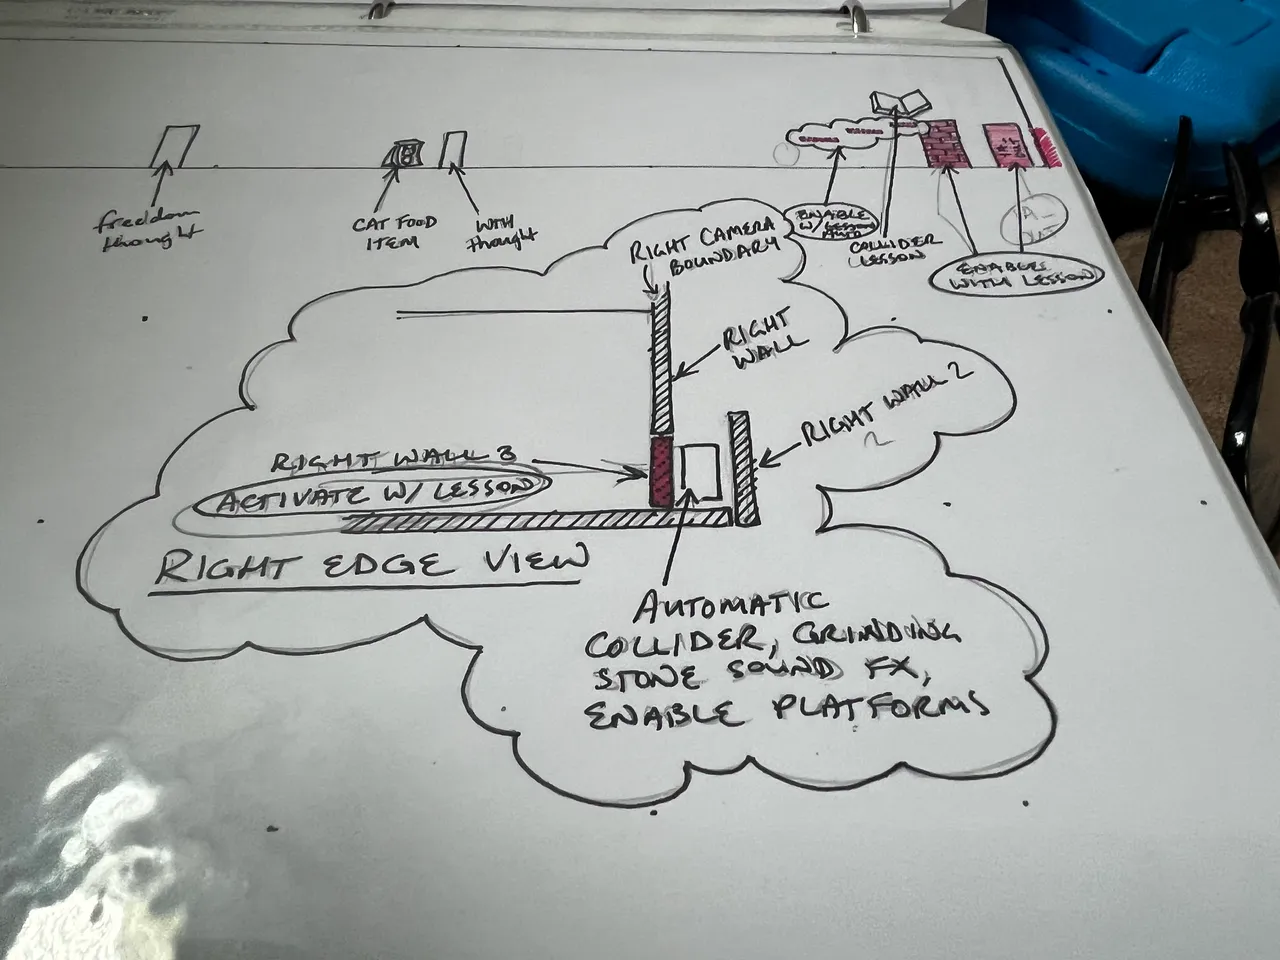 freedom
thought
CAT FOOD
ITEM
WITH
thought
ENABLE
W/ LESSON
COLLIDER
LESSON
ENABLE
WITH LESSON
RIGHT CAMERA
BOUNDARY
RIGHT
WALL
RIGHT WALL 2
2
RIGHT WALL 3
ACTIVATE W/ LESSON
RIGHT EDGE VIEW
AUTOMATIC
COLLIDER, GRINDING
STONE SOUND FX,
ENABLE PLATFORMS